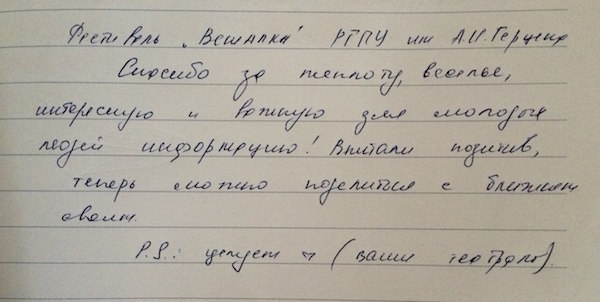 Фестиваль „Вешалка" РГПУ им А.И. Герцена
Спасибо за теплоту, веселье,
интересную и важную для молодых
людей информацию! Впитали позитив,
теперь можно поделиться с ближним
своим.
P.S.: целуем (ваши театралы).